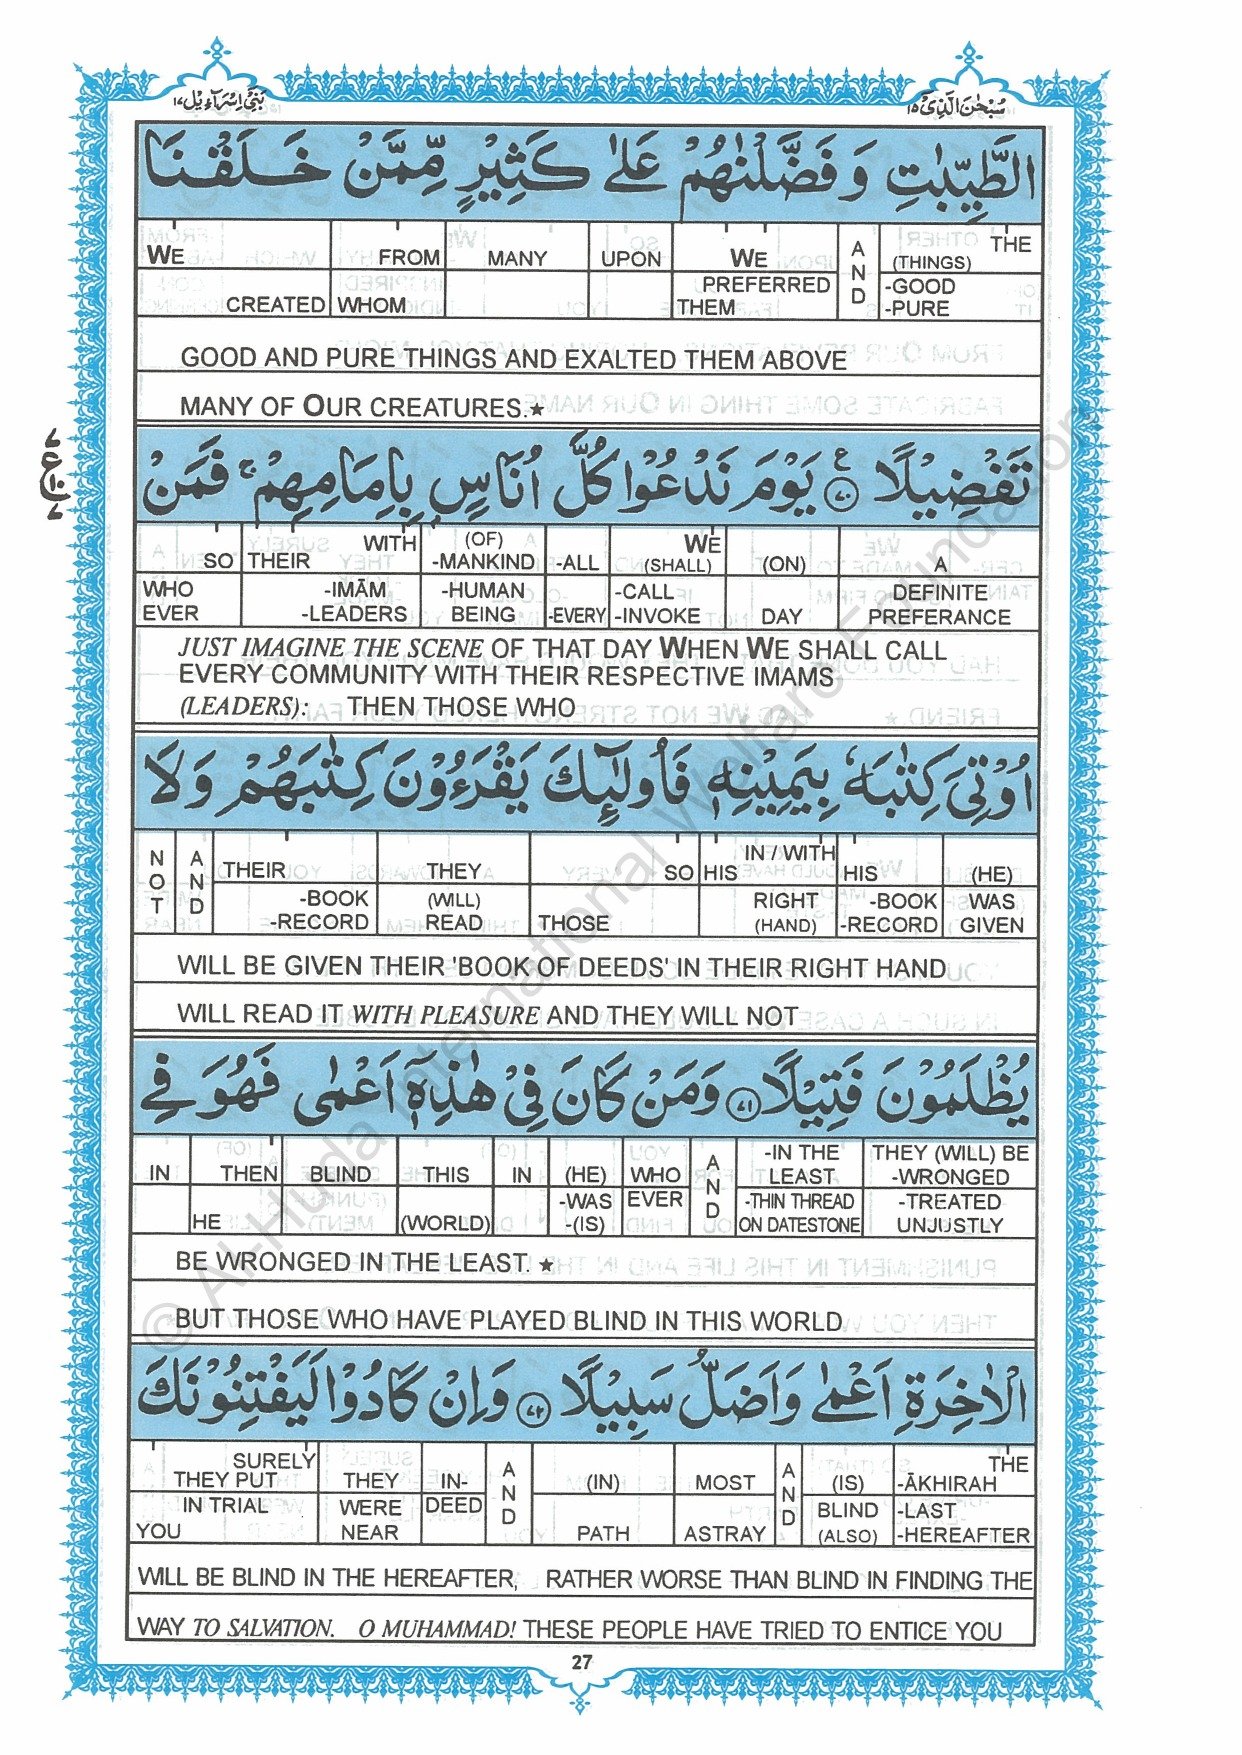 بَنِیْٓ اِسْرَآءِیْل ١٧
سُبْحٰنَ الَّذِیْٓ ١٥
الطَّیِّبٰتِ وَ فَضَّلْنٰهُمْ عَلٰی كَثِیْرٍ مِّمَّنْ خَلَقْنَا
WE FROM MANY UPON WE AND OTHER (THINGS) THE
CREATED WHOM PREFERRED THEM -GOOD -PURE
GOOD AND PURE THINGS AND EXALTED THEM ABOVE
MANY OF OUR CREATURES.★
تَفْضِیْلًا ﴿٧٠﴾ یَوْمَ نَدْعُوْا كُلَّ اُنَاسٍ بِاِمَامِهِمْ ۚ فَمَنْ
ع ١٠
SO THEIR WITH (OF) -MANKIND -ALL WE (SHALL) (ON) A
WHO EVER -IMĀM -LEADERS -HUMAN BEING -EVERY -CALL -INVOKE DAY DEFINITE PREFERANCE
JUST IMAGINE THE SCENE OF THAT DAY WHEN WE SHALL CALL
EVERY COMMUNITY WITH THEIR RESPECTIVE IMAMS
(LEADERS): THEN THOSE WHO
اُوْتِیَ كِتٰبَهٗ بِیَمِیْنِهٖ فَاُولٰٓىِٕكَ یَقْرَءُوْنَ كِتٰبَهُمْ وَلَا
NOT AND THEIR THEY SO HIS IN / WITH HIS (HE)
-BOOK -RECORD (WILL) READ THOSE RIGHT (HAND) -BOOK -RECORD WAS GIVEN
WILL BE GIVEN THEIR 'BOOK OF DEEDS' IN THEIR RIGHT HAND
WILL READ IT WITH PLEASURE AND THEY WILL NOT
یُظْلَمُوْنَ فَتِیْلًا ﴿٧١﴾ وَمَنْ كَانَ فِیْ هٰذِهٖۤ اَعْمٰی فَهُوَ فِی
IN THEN BLIND THIS IN (HE) WHO AND -IN THE LEAST THEY (WILL) BE -WRONGED
HE (WORLD) -WAS -(IS) EVER -THIN THREAD ON DATESTONE -TREATED UNJUSTLY
BE WRONGED IN THE LEAST. ★
BUT THOSE WHO HAVE PLAYED BLIND IN THIS WORLD
الْاٰخِرَةِ اَعْمٰی وَ اَضَلُّ سَبِیْلًا ﴿٧٢﴾ وَاِنْ كَادُوْا لَیَفْتِنُوْنَكَ
SURELY THEY PUT THEY IN- AND (IN) MOST AND (IS) THE -ĀKHIRAH
IN TRIAL YOU WERE NEAR DEED PATH ASTRAY BLIND (ALSO) -LAST -HEREAFTER
WILL BE BLIND IN THE HEREAFTER, RATHER WORSE THAN BLIND IN FINDING THE
WAY TO SALVATION. O MUHAMMAD! THESE PEOPLE HAVE TRIED TO ENTICE YOU
27
© Al-Huda International Welfare Foundation